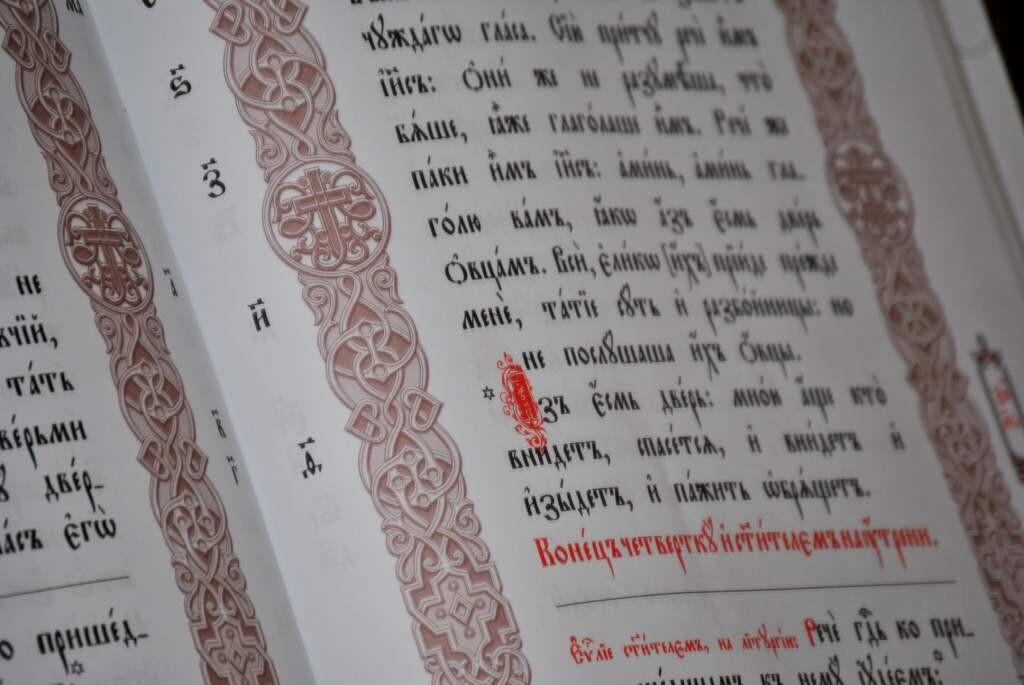 не
вчїй,
та́ть
две́рьми
две́р-
гла́съ є҆гѡ̀
прише́д-
ѕ҃
з҃
и҃
д҃
чꙋжда́гѡ гла́са. Сїю̀ при́тчꙋ речѐ и҆̀мъ
і҆и҃съ: Ѻ҆ни́ же не разꙋмѣ́ша, что̀
бѧ́ше, ꙗ҆̀же глаго́лаше и҆̀мъ. Рече́ же
па́ки и҆̀мъ і҆и҃съ: а҆ми́нь, а҆ми́нь гла-
го́лю ва́мъ, ꙗ҆́кѡ а҆́зъ є҆́смь две́рь
Ѻ҆вца́мъ. Всѝ, є҆ли́кѡ [и҆́хъ] прїи́де пре́жде
менє̀, та́тїе сꙋ́ть и҆ разбо́йницы: но
не послꙋ́шаша и҆́хъ ѻ҆́вцы.
А҆́зъ є҆́смь две́рь: мно́ю а҆́ще кто̀
вни́детъ, спасе́тсѧ, и҆ вни́детъ и҆
и҆зы́детъ, и҆ па́жить ѡ҆брѧ́щетъ.
Коне́цъ четверткꙋ̀ и҆ ст҃и́телємъ на ᲂу҆́трени.
Є҆ѵⷢ҇лїе ст҃и́телємъ, на лїтꙋргі́и: Речѐ гдⷭ҇ь ко при-
ше́дшымъ къ немꙋ̀ і҆ꙋде́ємъ: